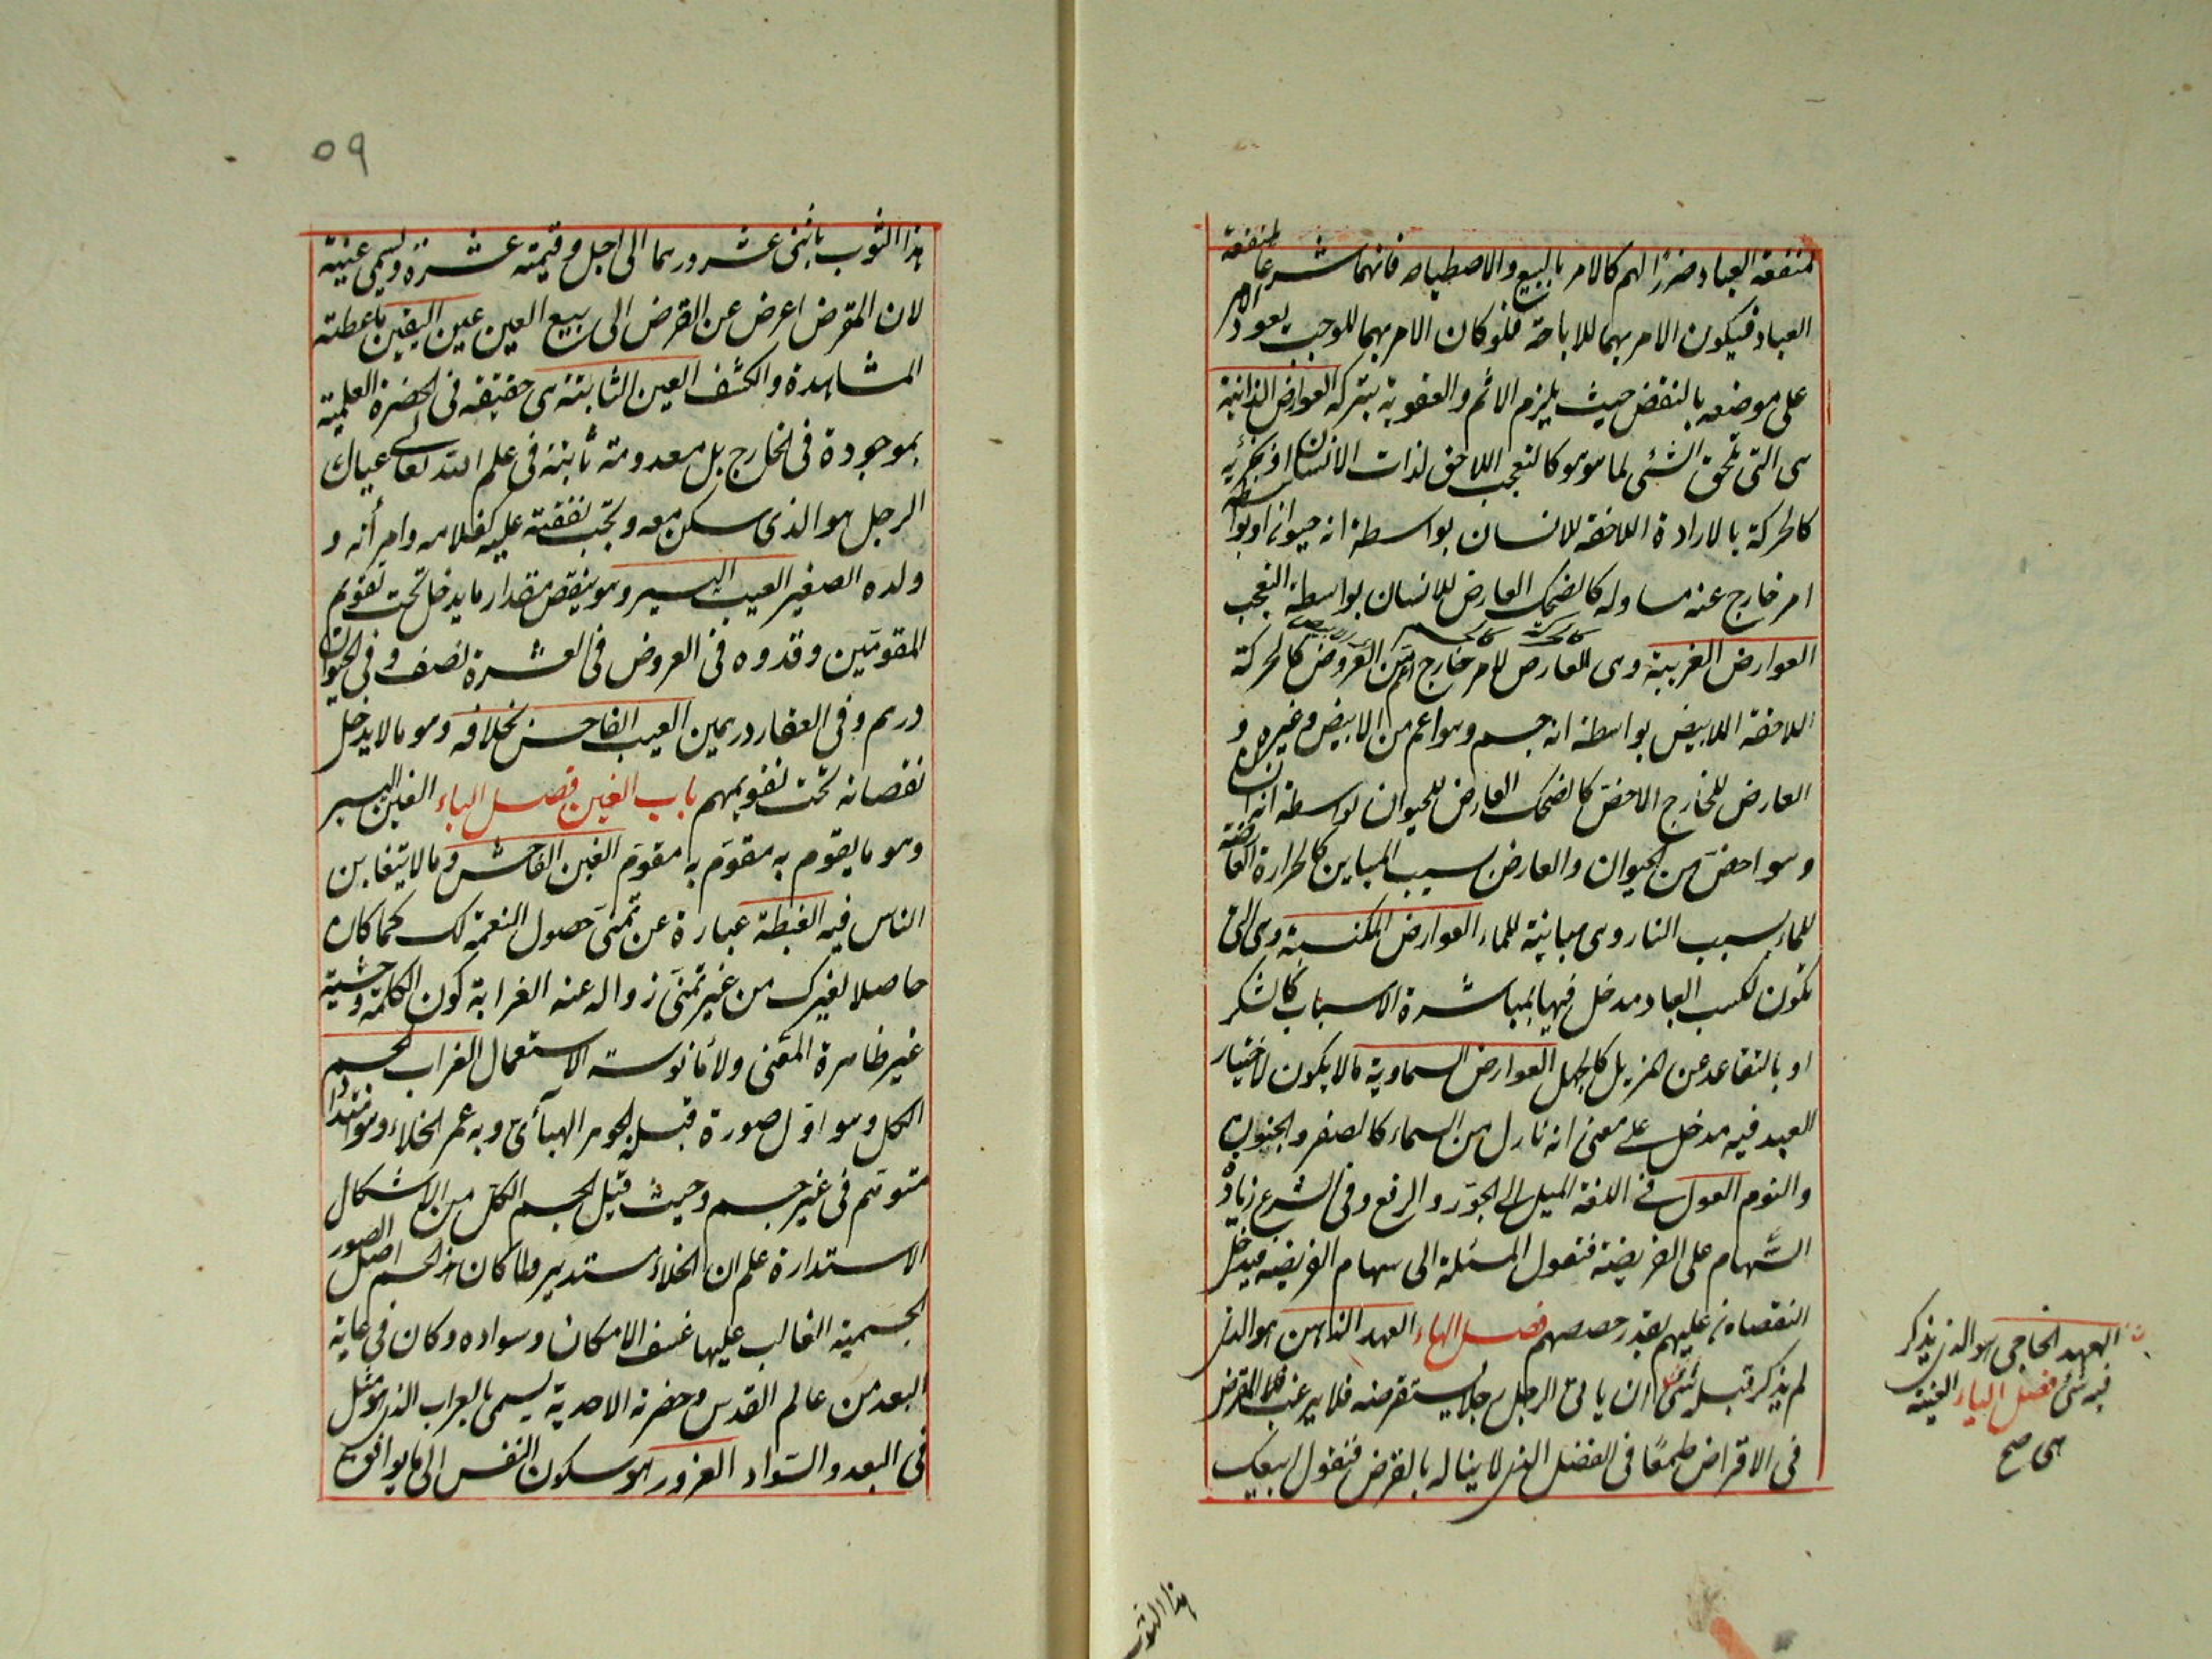 لمنفعة العباد ضررًا لهم كالامر بالبيع والاصطياد فانهما شرعا لمنفعة
العباد فيكون الامر بهما للاباحة فلو كان الامر بهما للوجوب يعود الامر
على موضعه بالنقض حيث يلزم الاثم والعقوبة بتركه العوارض الذاتية
هى التى تلحق الشئ لما هو هو كالتعجب اللاحق لذات الانسان او لجزئه
كالحركة بالارادة اللاحقة للانسان بواسطة انه حيوان او بواسطة
امر خارج عنه مساو له كالضحك العارض للانسان بواسطة التعجب
العوارض الغريبة وهى للعارض لامر خارج اعم من المعروض كالحركة
اللاحقة اللابيض بواسطة انه جسم وهو اعم من الابيض وغيره و
العارض للخارج الاخص كالضحك العارض للحيوان بواسطة انه انسان
وهو اخص من الحيوان والعارض بسبب المباين كالحرارة العارضة
للماء بسبب النار وهى مباينة للماء العوارض المكتسبة وهى التى
تكون لكسب العباد مدخل فيها بمباشرة الاسباب كالسكر
او بالتقاعد عن المزيل كالجهل العوارض السماوية ما لا يكون لاختيار
العبد فيه مدخل على معنى انه نازل من السماء كالصغر والجنون
والنوم العول فى اللغة الميل الى الجور والرفع وفى الشرع زيادة
السّهام على الفريضة فتعول المسئلة الى سهام الفريضة فيدخل
النقصان عليهم بقدر حصصهم فصل الهاء العهد الذهنى هو الذى
لم يذكر قبله شئ ان ياتى الرجل رجلا يستقرضه فلا يرغب المقرض
فى الاقراض طمعًا فى الفضل الذى لا يناله بالقرض فيقول ابيعك
العهد الخارجى هو الذى يذكر
قبله شئ فصل الياء العينة
هى صح
هذا الثوب
٥٩
هذا الثوب باثنى عشر درهما الى اجل وقيمته عشرة ويسمى عينة
لان المقرض اعرض عن القرض الى بيع العين عين اليقين ما اعطته
المشاهدة والكشف العين الثابتة هى حقيقة فى الحضرة العلمية
بموجودة فى الخارج بل معدومة ثابتة فى علم الله تعالى عيال
الرجل هو الذى سكن معه وتجب نفقته عليه كغلامه وامرأته و
ولده الصغير العيب اليسير وهو ينقص مقدار ما يدخل تحت تقويم
المقومين وقدروه فى العروض فى العشرة نصف وفى الحيوان
درهم وفى العقار درهمين العيب الفاحش بخلافه وهو ما لا يدخل
نقصانه تحت تقويمهم باب الغين فصل الباء الغبن اليسير
وهو ما يقوم به مقوم به مقوم الغبن الفاحش وما لا يتغابن
الناس فيه الغبطة عبارة عن تمنى حصول النعمة لك كما كان
حاصلا لغيرك من غير تمنى زواله عنه الغرابة كون الكلمة وحشية
غير ظاهرة المعنى ولا مأنوسة الاستعمال الغراب الجسم
الكل وهو اول صورة قبله الجوهر الهبائى وبه عمر الخلاء وهو امتداد
متوهم فى غير جسم وحيث قبل الجسم الكل من الاشكال
الاستدارة علم ان الخلاء مستدير ولما كان هذا الجسم اصل الصور
الجسمية الغالب عليها غسق الامكان وسواده وكان فى غاية
البعد من عالم القدس وحضرة الاحدية يسمى بالغراب الذى هو مثل
فى البعد والسّواد الغرور هو سكون النفس الى ما يوافق